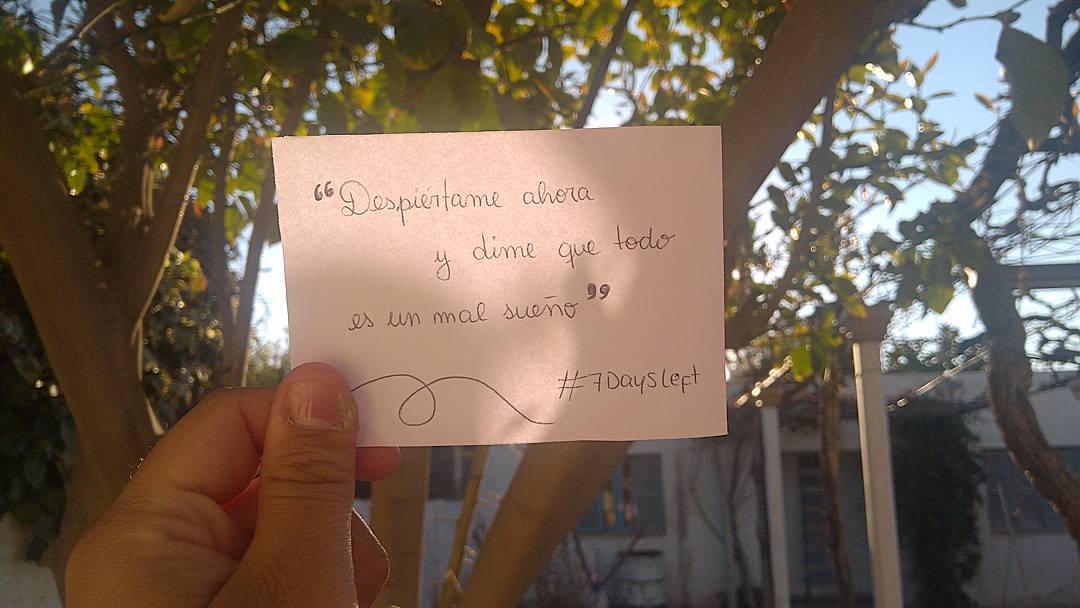 “Despiértame ahora
y dime que todo
es un mal sueño”
#7DaysLeft